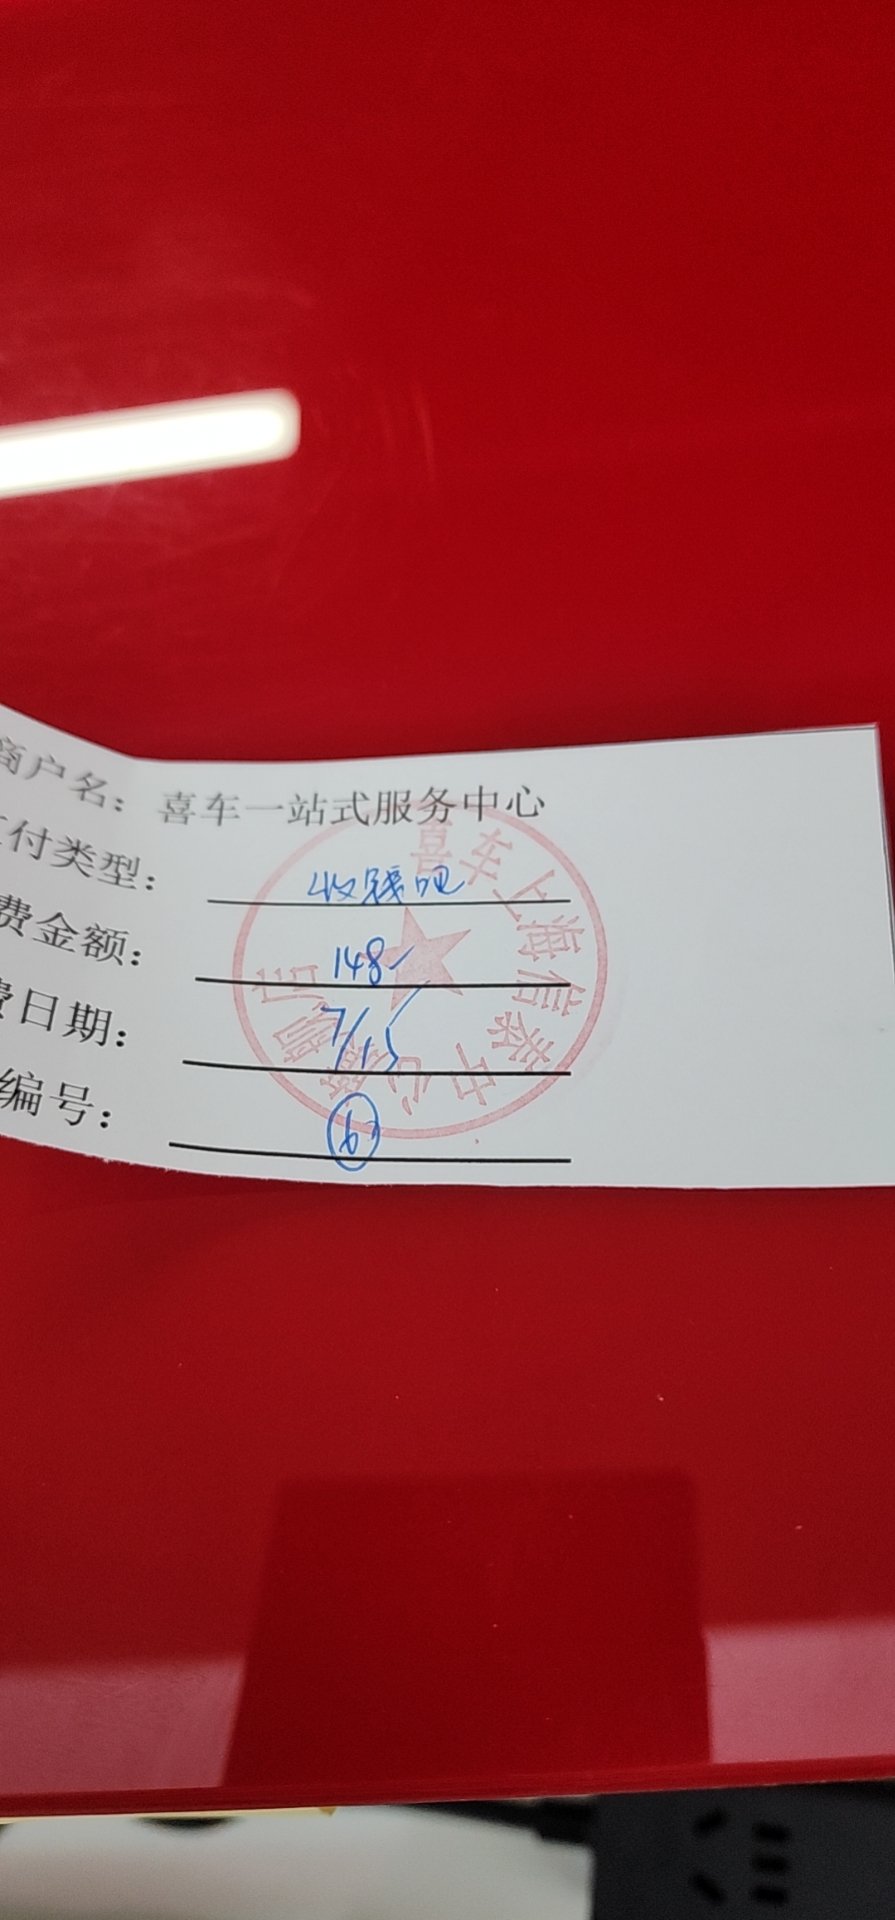 商户名：喜车一站式服务中心
付类型：收钱吧
费金额：148-
费日期：7/15
编号：⑥
喜车上海信泰中心旗舰店